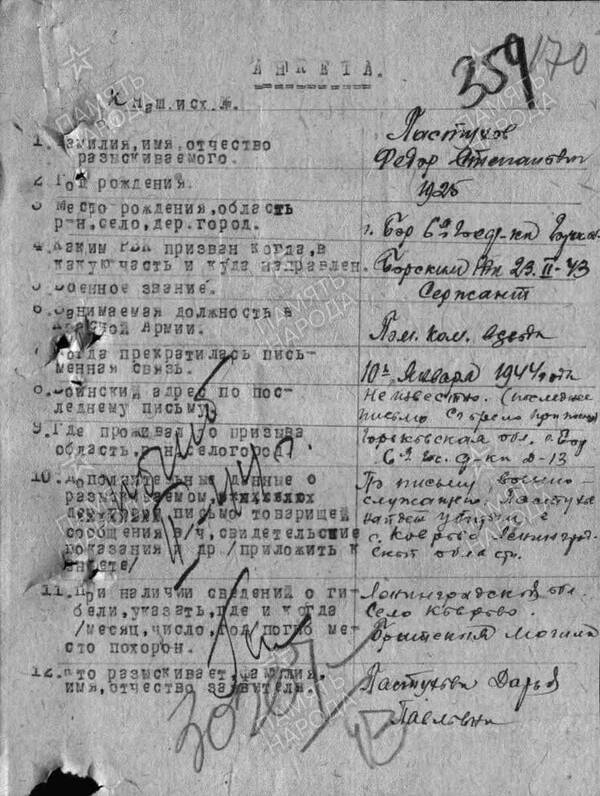 359
170
АНКЕТА.
К маш.исх.№.
1. Фамилия,имя,отчество
разыскиваемого.
Пастухов
Федор Степанович
2. Год рождения.
1925
3 Место рождения,область
р-н,село,дер.город.
г. Бор 6й Госдр-ка
4. Каким РВК призван когда,в
какую часть и куда направлен.
Борским 23.II-43
5 Военное звание.
Сержант
6 Занимаемая должность в
Красной Армии.
Пом. ком.
7 Когда прекратилась пись-
менная связь.
10го Января 1944 года
8. Воинский адрес по пос-
леднему письму.
Неизвестно. (последнее
письмо
9. Где проживал до призыва
область, р-н,село,город.
Горьковская обл. г. Бор
6й Д-13
10. Дополнительные данные о
разыскиваемом,
письмо товарищей
сообщения в/ч,свидетельские
показания и др /приложить к
анкете/
По письму военно-
служащего. Пастухов
найден убитым в
с. Коврово Ленинград-
ской области.
11. При наличии сведений о ги-
бели,указать,где и когда
/месяц,число,год погиб ме-
сто похорон.
Ленинградской обл.
Село Коврово.
Братский Могила
12. Кто разыскивает,фамилия,
имя,отчество заявителя.
Пастухова Дарья
Павловна
убит
ПАМЯТЬ
НАРОДА